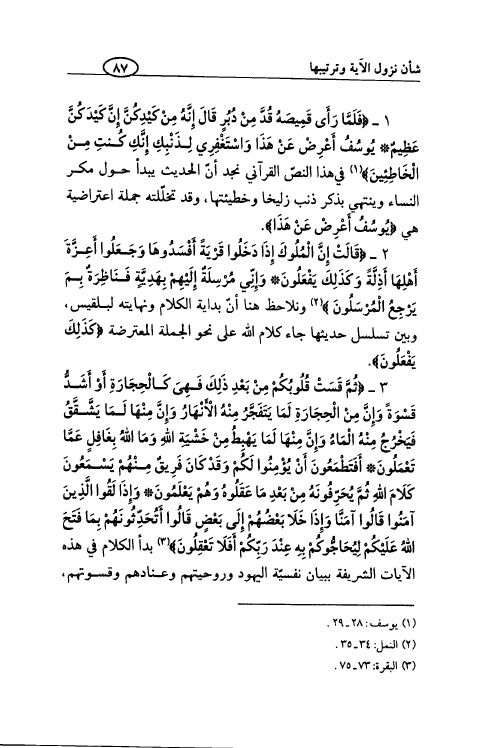 شأن نزول الآية وترتيبها
٨٧
١ ـ ﴿فَلَمَّا رَأَى قَمِيصَهُ قُدَّ مِنْ دُبُرٍ قَالَ إِنَّهُ مِنْ كَيْدِكُنَّ إِنَّ كَيْدَكُنَّ
عَظِيمٌ* يُوسُفُ أَعْرِضْ عَنْ هَذَا وَاسْتَغْفِرِي لِذَنْبِكِ إِنَّكِ كُنتِ مِنْ
الْخَاطِئِينَ﴾(١) في هذا النصّ القرآني نجد أنّ الحديث يبدأ حول مكر
النساء وينتهي بذكر ذنب زليخا وخطيئتها، وقد تخلّلته جملة اعتراضية
هي ﴿يُوسُفُ أَعْرِضْ عَنْ هَذَا﴾.
٢ ـ ﴿قَالَتْ إِنَّ الْمُلُوكَ إِذَا دَخَلُوا قَرْيَةً أَفْسَدُوهَا وَجَعَلُوا أَعِزَّةَ
أَهْلِهَا أَذِلَّةً وَكَذَلِكَ يَفْعَلُونَ* وَإِنِّي مُرْسِلَةٌ إِلَيْهِمْ بِهَدِيَّةٍ فَنَاظِرَةٌ بِمَ
يَرْجِعُ الْمُرْسَلُونَ﴾(٢) ونلاحظ هنا أنّ بداية الكلام ونهايته لبلقيس،
وبين تسلسل حديثها جاء كلام الله على نحو الجملة المعترضة ﴿كَذَلِكَ
يَفْعَلُونَ﴾.
٣ ـ ﴿ثُمَّ قَسَتْ قُلُوبُكُمْ مِنْ بَعْدِ ذَلِكَ فَهِيَ كَالْحِجَارَةِ أَوْ أَشَدُّ
قَسْوَةً وَإِنَّ مِنْ الْحِجَارَةِ لَمَا يَتَفَجَّرُ مِنْهُ الْأَنْهَارُ وَإِنَّ مِنْهَا لَمَا يَشَّقَّقُ
فَيَخْرُجُ مِنْهُ الْمَاءُ وَإِنَّ مِنْهَا لَمَا يَهْبِطُ مِنْ خَشْيَةِ اللهِ وَمَا اللهُ بِغَافِلٍ عَمَّا
تَعْمَلُونَ* أَفَتَطْمَعُونَ أَنْ يُؤْمِنُوا لَكُمْ وَقَدْ كَانَ فَرِيقٌ مِنْهُمْ يَسْمَعُونَ
كَلَامَ اللهِ ثُمَّ يُحَرِّفُونَهُ مِنْ بَعْدِ مَا عَقَلُوهُ وَهُمْ يَعْلَمُونَ* وَإِذَا لَقُوا الَّذِينَ
آمَنُوا قَالُوا آمَنَّا وَإِذَا خَلَا بَعْضُهُمْ إِلَى بَعْضٍ قَالُوا أَتُحَدِّثُونَهُمْ بِمَا فَتَحَ
اللهُ عَلَيْكُمْ لِيُحَاجُّوكُمْ بِهِ عِنْدَ رَبِّكُمْ أَفَلَا تَعْقِلُونَ﴾(٣) بدأ الكلام في هذه
الآيات الشريفة ببيان نفسيّة اليهود وروحيتهم وعنادهم وقسوتهم،
(١) يوسف: ٢٨ـ٢٩.
(٢) النمل: ٣٤ـ٣٥.
(٣) البقرة: ٧٣ـ٧٥.